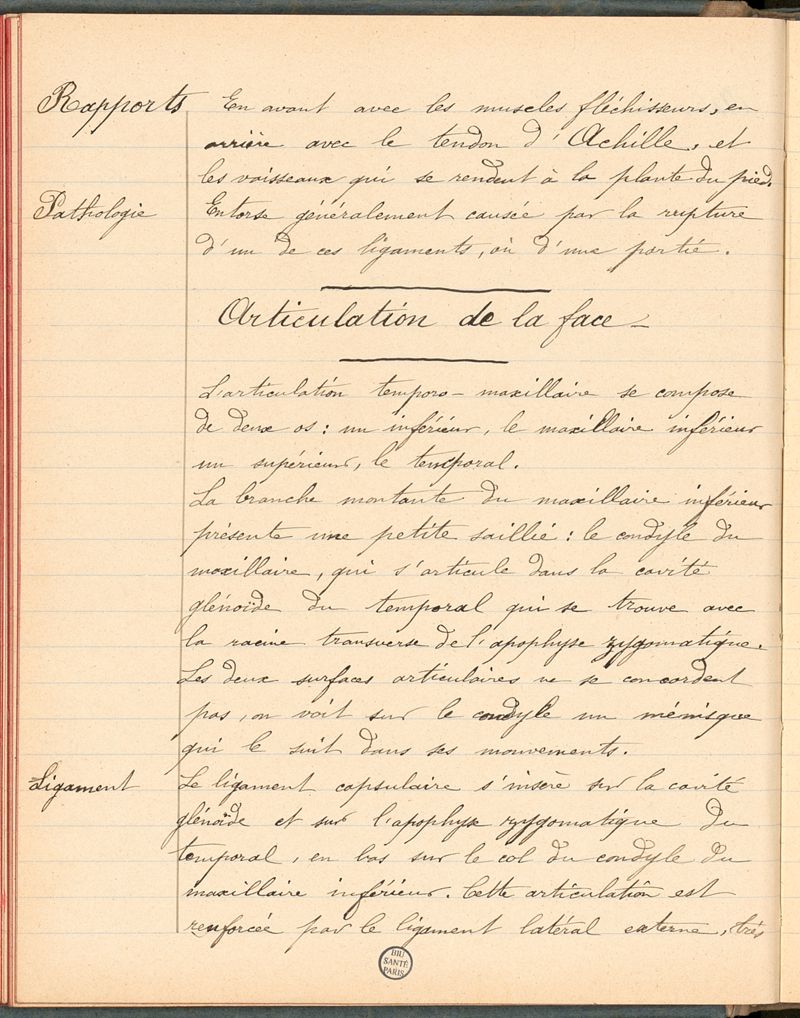 Rapports En avant avec les muscles fléchisseurs, en
arrière avec le tendon d'Achille, et
les vaisseaux qui se rendent à la plante du pied.
Pathologie Entorse généralement causée par la rupture
d'un de ces ligaments, où d'une partie.
Articulation de la face —
L'articulation temporo-maxillaire se compose
de deux os : un inférieur, le maxillaire inférieur
un supérieur, le temporal.
La branche montante du maxillaire inférieur
présente une petite saillie : le condyle du
maxillaire, qui s'articule dans la cavité
glénoïde du temporal qui se trouve avec
la racine transverse de l'apophyse zygomatique.
Les deux surfaces articulaires ne se concordent
pas, on voit sur le condyle un ménisque
qui le suit dans ses mouvements.
Ligament Le ligament capsulaire s'insère sur la cavité
glénoïde et sur l'apophyse zygomatique du
temporal, en bas sur le col du condyle du
maxillaire inférieur. Cette articulation est
renforcée par le ligament latéral externe, très
BIU
SANTÉ
PARIS